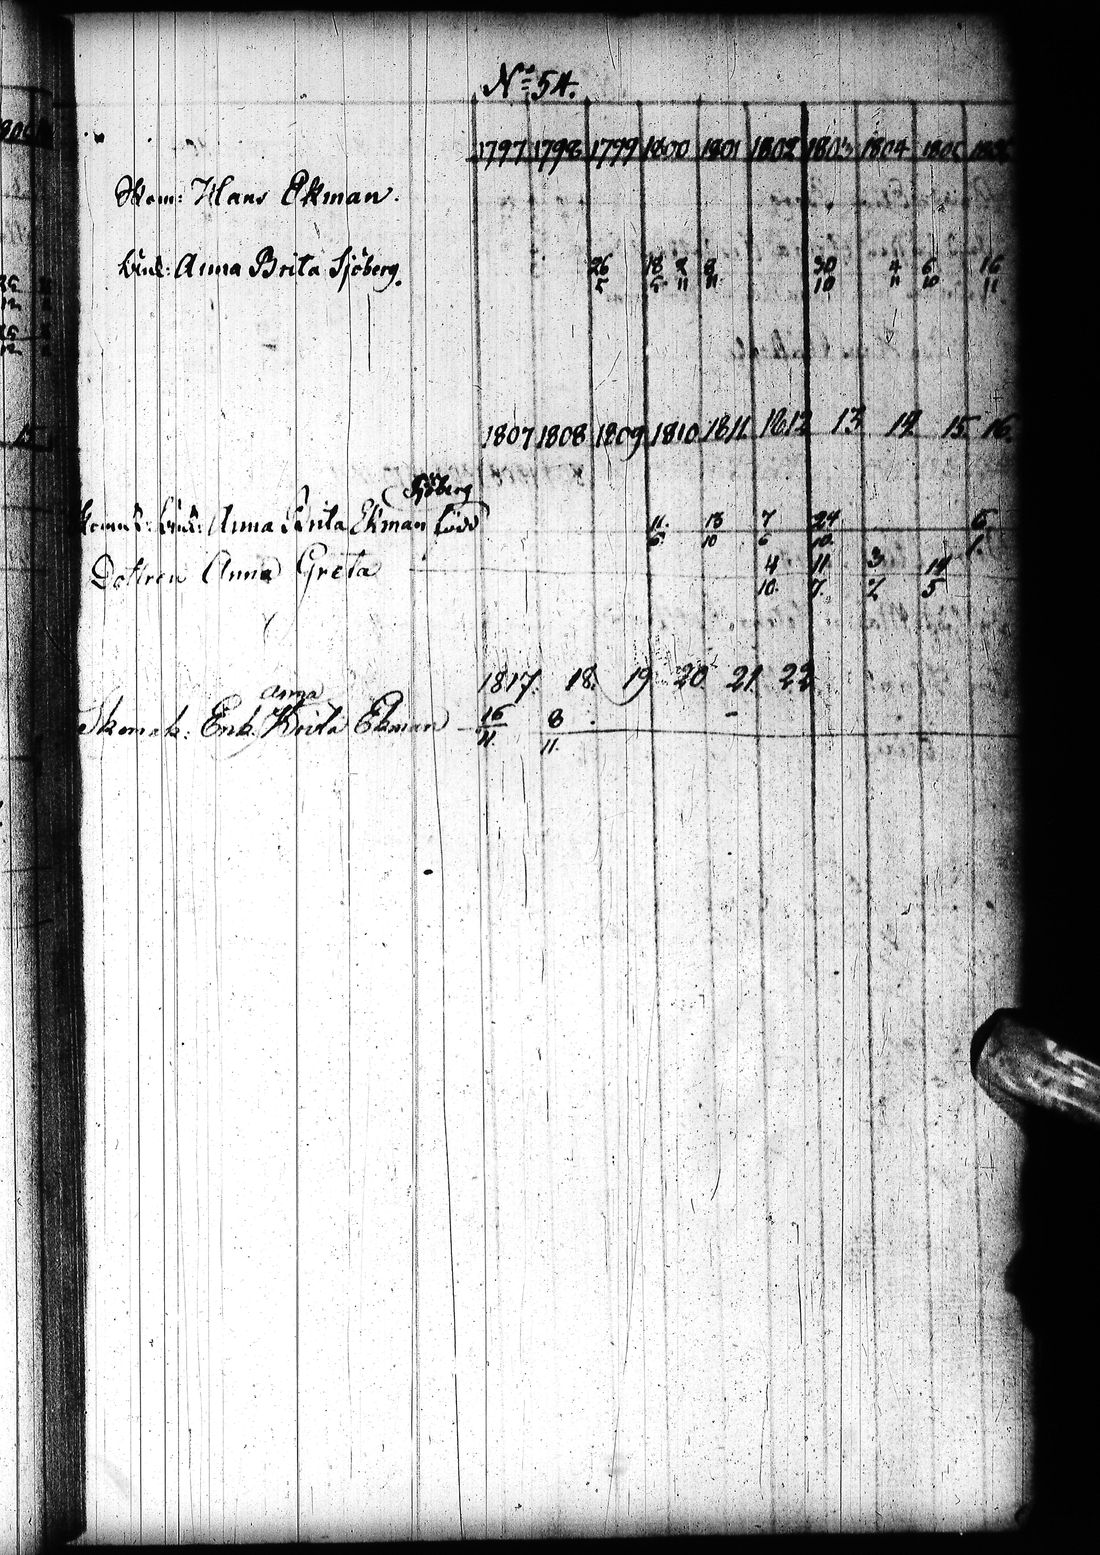 No 54.
1797 1798 1799 1800 1801 1802 1803 1804 1805 1806
Skom: Hans Ekman.
Hust: Anna Brita Sjöberg. 26/5 18/5 2/11 8/11 30/10 4/11 6/10 16/11
1807 1808 1809 1810 1811 1812 13 14 15 16.
Sjöberg
Hust: Anna Brita Ekman född 11/6 13/10 7/6 24/10
Dottren Anna Greta 4/10. 11/7. 3/7 14/5
1817. 18. 19 20 21. 22
Anna
Skomak: Enk. Brita Ekman 16/11. 8/11.